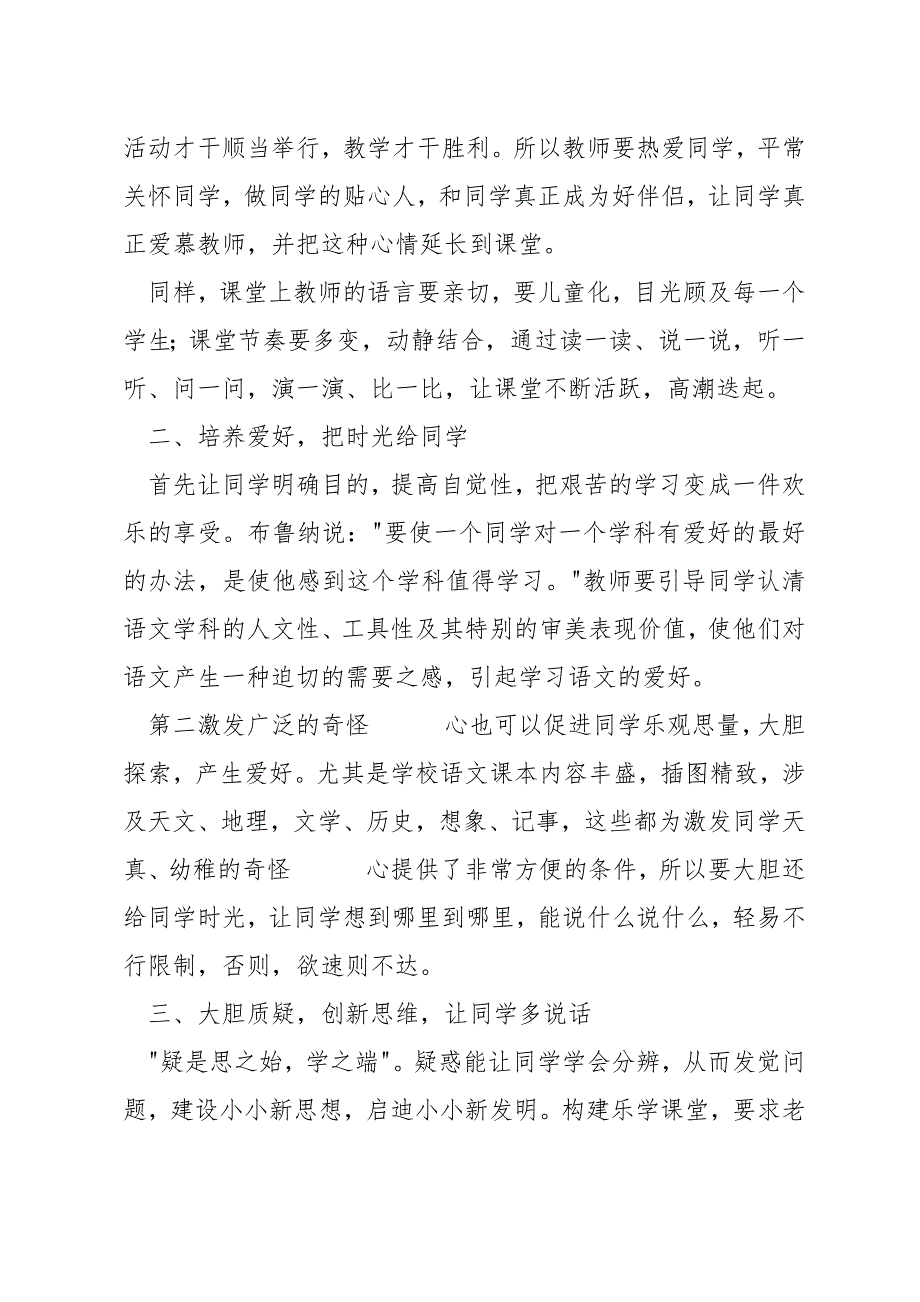 活动才干顺当举行，教学才干胜利。所以教师要热爱同学，平常
关怀同学，做同学的贴心人，和同学真正成为好伴侣，让同学真
正爱慕教师，并把这种心情延长到课堂。
同样，课堂上教师的语言要亲切，要儿童化，目光顾及每一个
学生；课堂节奏要多变，动静结合，通过读一读、说一说，听一
听、问一问，演一演、比一比，让课堂不断活跃，高潮迭起。
二、培养爱好，把时光给同学
首先让同学明确目的，提高自觉性，把艰苦的学习变成一件欢
乐的享受。布鲁纳说："要使一个同学对一个学科有爱好的最好
的办法，是使他感到这个学科值得学习。"教师要引导同学认清
语文学科的人文性、工具性及其特别的审美表现价值，使他们对
语文产生一种迫切的需要之感，引起学习语文的爱好。
第二激发广泛的奇怪 心也可以促进同学乐观思量，大胆
探索，产生爱好。尤其是学校语文课本内容丰盛，插图精致，涉
及天文、地理，文学、历史，想象、记事，这些都为激发同学天
真、幼稚的奇怪 心提供了非常方便的条件，所以要大胆还
给同学时光，让同学想到哪里到哪里，能说什么说什么，轻易不
行限制，否则，欲速则不达。
三、大胆质疑，创新思维，让同学多说话
"疑是思之始，学之端"。疑惑能让同学学会分辨，从而发觉问
题，建设小小新思想，启迪小小新发明。构建乐学课堂，要求老